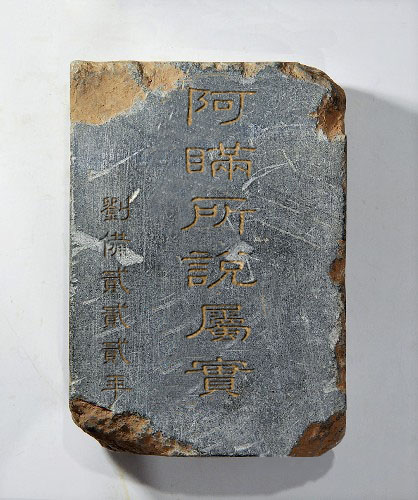 阿瞞所說屬實
劉備貳貳貳年